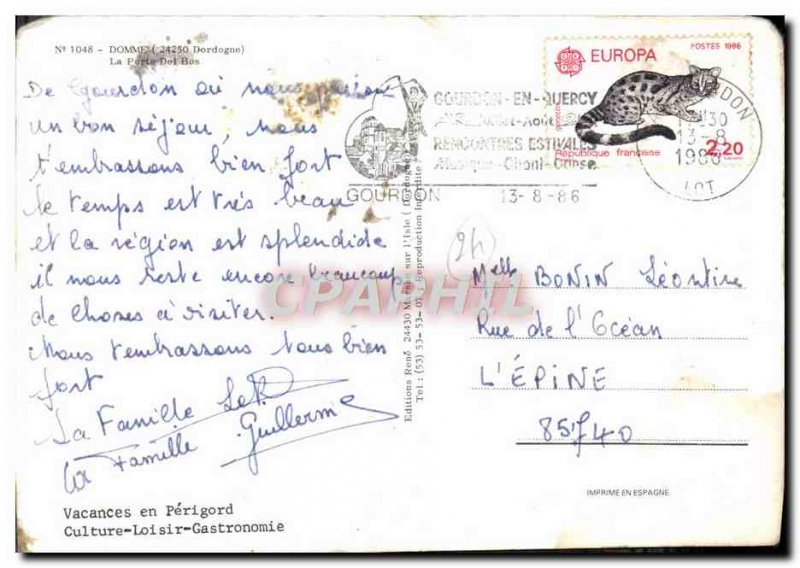 Nº 1048 - DOMME ( 24250 Dordogne)
La Porte Del Bos
De Gourdon où nous
un bon séjour, nous
t'embrassons bien fort
le temps est très beau
et la région est splendide
il nous reste encore beaucoup
de choses à visiter.
Nous t'embrassons tous bien
fort
La Famille
La Famille Guillerme
Vacances en Périgord
Culture-Loisir-Gastronomie
Editions René 24430 sur l'Isle ( Dordogne
Tel : (53) 53-53-07 / Reproduction Interdite
GOURDON-EN-QUERCY
Juillet-Août
RENCONTRES ESTIVALES
Musique-Chant-Danse
GOURDON
13-8-86
EUROPA
POSTES 1986
genette
République française
2,20
GOURDON
30
13-8
1986
LOT
CPAPHIL
(24)
Melle BONIN Léontine
Rue de l'Océan
L'ÉPINE
85740
IMPRIME EN ESPAGNE